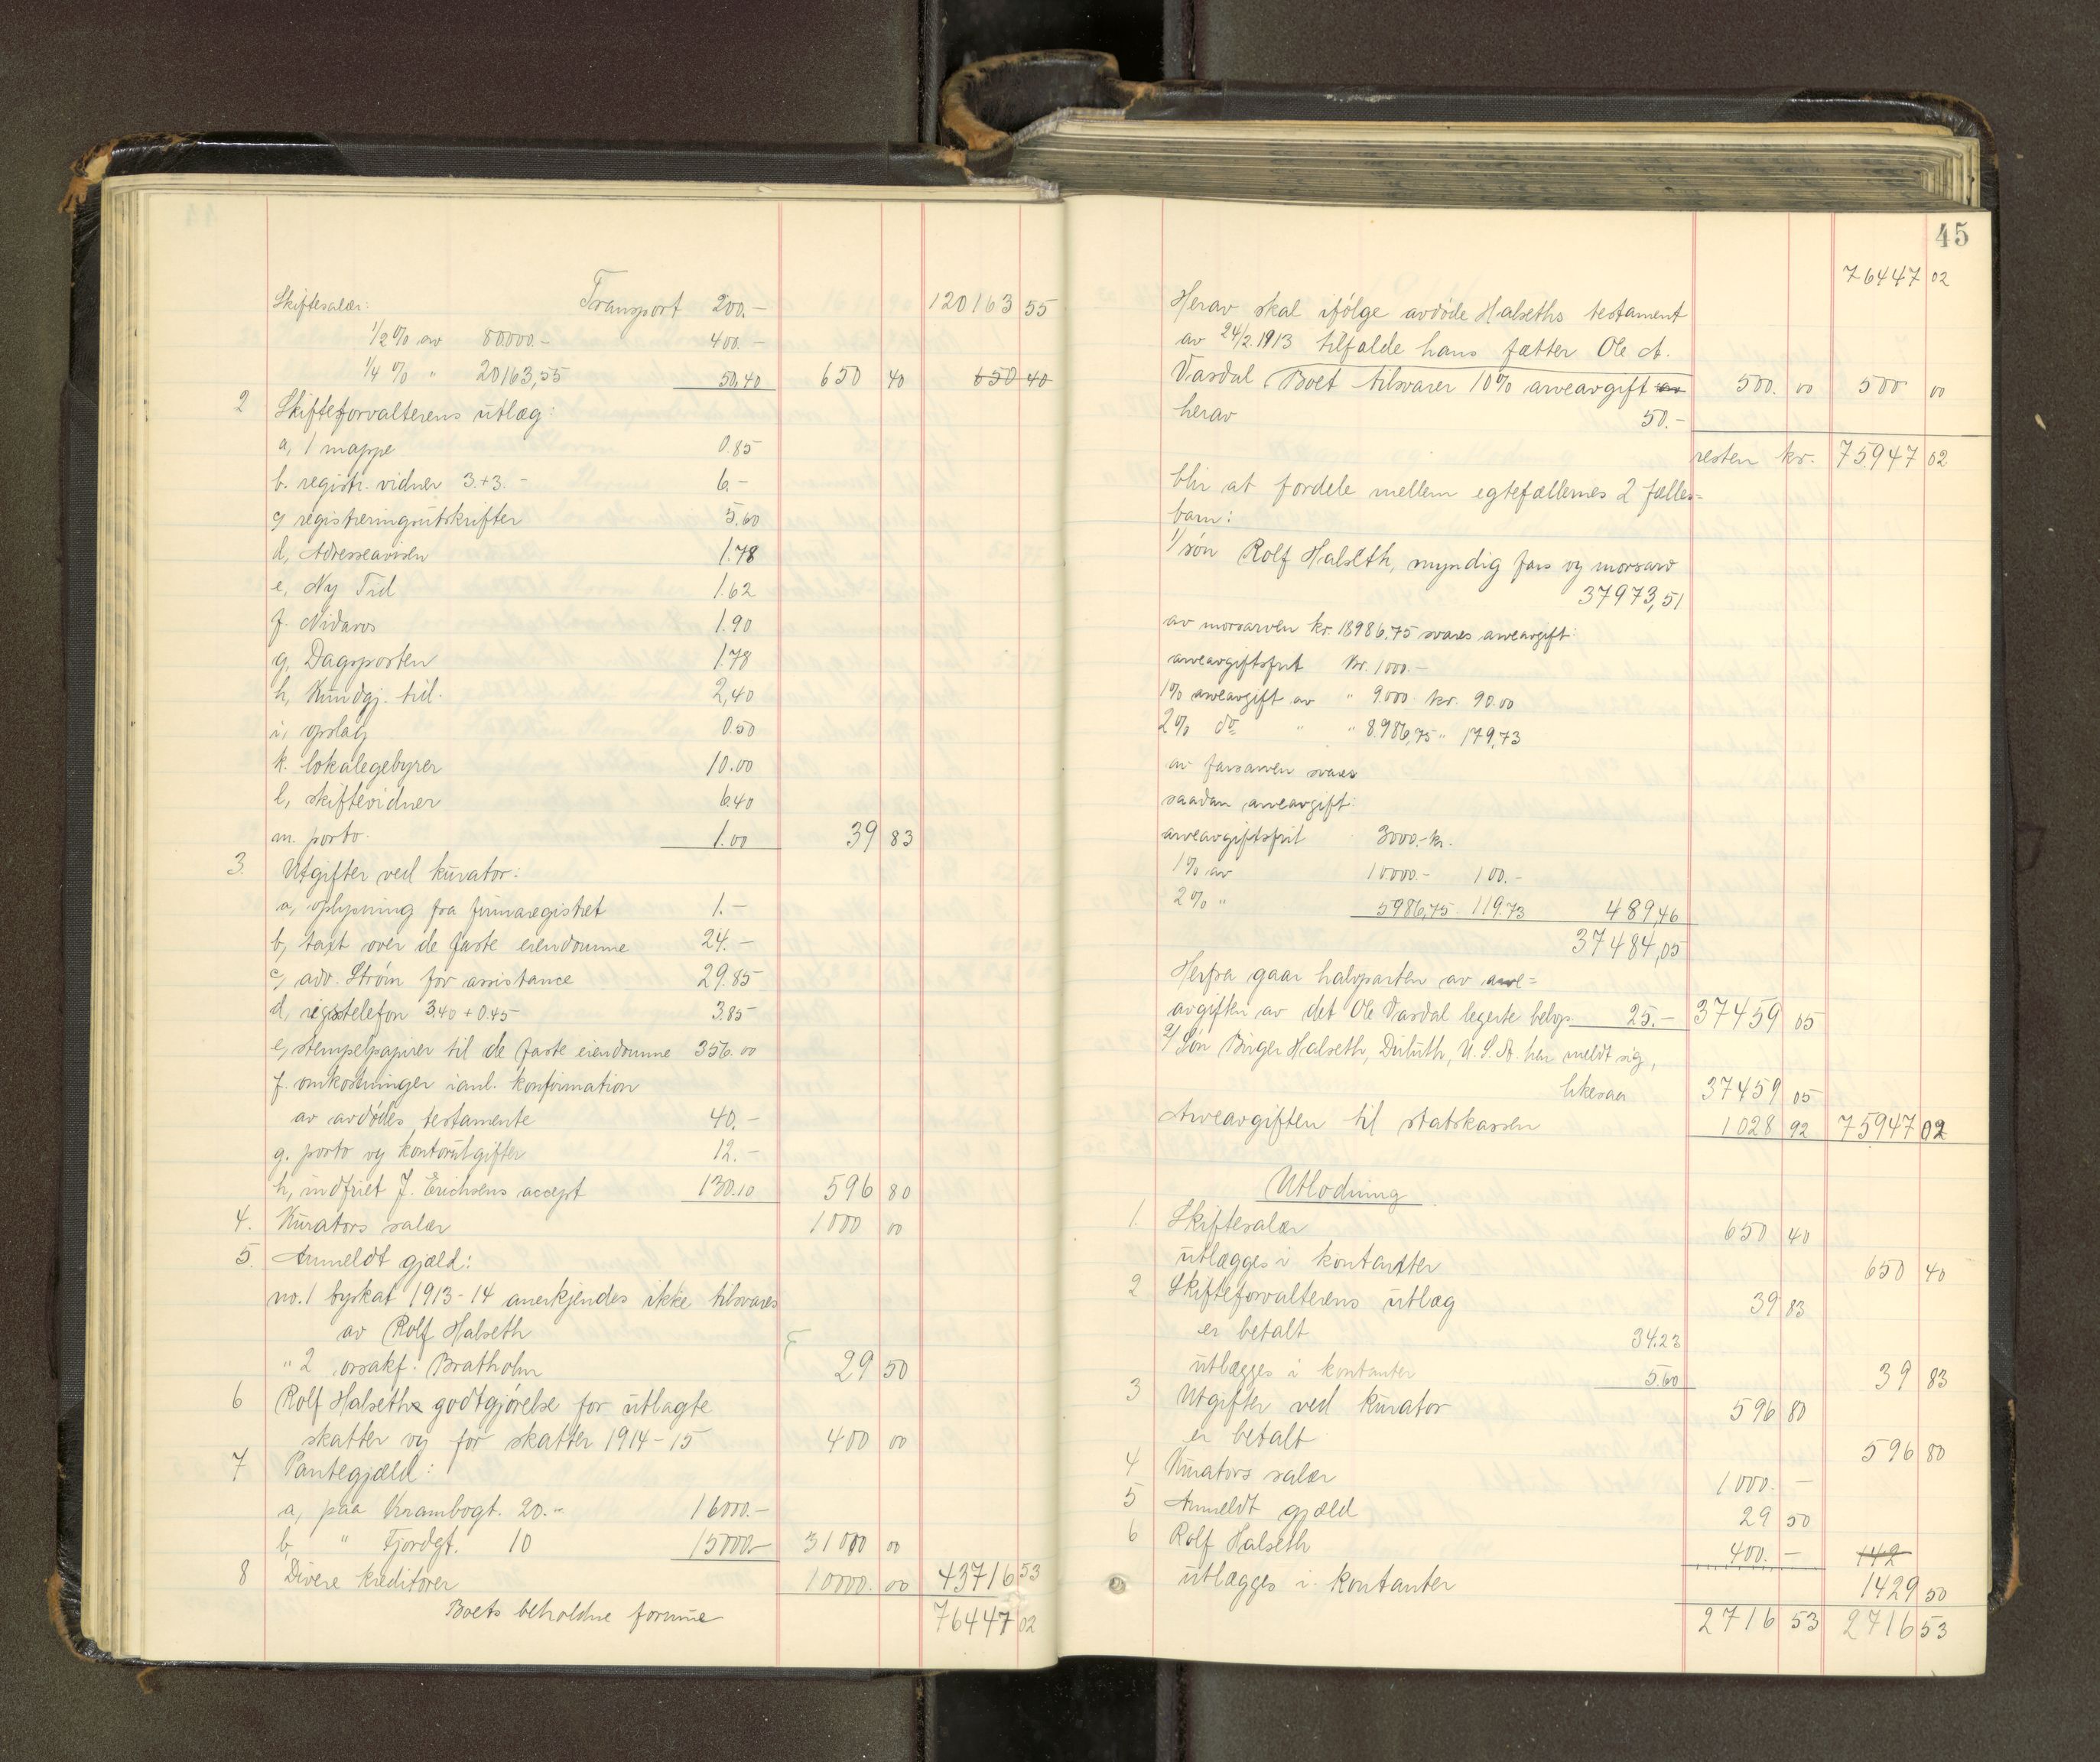 Skiftesalær: Transport 200.- 120163 55
1/2% av 80000.- 400.-
1/4% " 20163,55 50,40 650 40 650 40
2 Skifteforvalterens utlæg:
a, 1 mappe 0.85
b. registr. vidner 3.+3.- 6.-
c, registreringsutskrifter 5.60
d, Adresseavisen 1.78
e, Ny Tid 1.62
f. Nidaros 1.90
g, Dagsposten 1.78
h, Kundgj. tid. 2,40
i, opslag 0.50
k. lokalegebyrer 10.00
l, skiftevidner 6.40
m. porto. 1.00 39 83
3. Utgifter ved kurator:
a, oplysning fra firmaregistret 1.-
b, taxt over de faste eiendomme 24.-
c, adv. Strøm for assistance 29.85
d, rigstelefon 3.40 + 0.45 3.85
e, stempelpapirer til de faste eiendomme 356.00
f. omkostninger i anl. konfirmation
av avdødes testamente 40.-
g. porto og kontorutgifter 12.-
h, indfriet J. Erichsens accept 130.10 596 80
4. Kurators salær 1000 00
5. Anmeldt gjæld:
no. 1 byskat 1913-14 anerkjendes ikke tilsvares
av Rolf Halseth
" 2 orsakf. Bratholm 29 50
6 Rolf Halseths godtgjørelse for utlagte
skatter og for skatter 1914-15 400 00
7 Pantegjæld:
a, paa Krambogt. 20.- 16000.-
b, " Fjordgt. 10 15000.- 31000 00
8 Divere kreditorer 10000. 00 43716 53
Boets beholdne formue 76447 02
45
76447 02
Herav skal ifølge avdøde Halseths testament
av 24/2. 1913 tilfalde hans fætter Ole A.
Vasdal. Boet tilsvarer 10% arveavgift av 500. 00 500 00
herav 50.-
resten kr. 75947 02
blir at fordele mellem egtefællernes 2 fælles=
barn:
1/ søn Rolf Halseth, myndig fars og morsarv
37973,51
av morsarven kr. 18986,75 svares arveavgift:
arveavgiftsfrit kr. 1000.-
1% arveavgift av " 9000 kr. 90.00
2% do " " 8.986,75 " 179,73
av farsarven svares
saadan arveavgift:
arveavgiftsfrit 3000.- kr.
1% av 10000.- 100.-
2% " 5986,75 119.73 489,46
37484,05
Herfra gaar halvparten av arve=
avgiften av det Ole Vasdal legerte beløp 25.- 37459 05
2/ Søn Birger Halseth, Duluth, U.S.A. har meldt sig,
likesaa 37459 05
Arveavgiften til statskassen 1028 92 75947 02
Utlodning
1. Skiftesalær 650 40
utlægges i kontanter 650 40
2 Skifteforvalterens utlæg 39 83
er betalt 34.23
utlægges i kontanter 5.60 39 83
3 Utgifter ved kurator 596 80
er betalt 596 80
4 Kurators salær 1000. -
5 Anmeldt gjæld 29 50
6 Rolf Halseth 400. - 142
utlægges i kontanter 1429 50
2716 53 2716 53